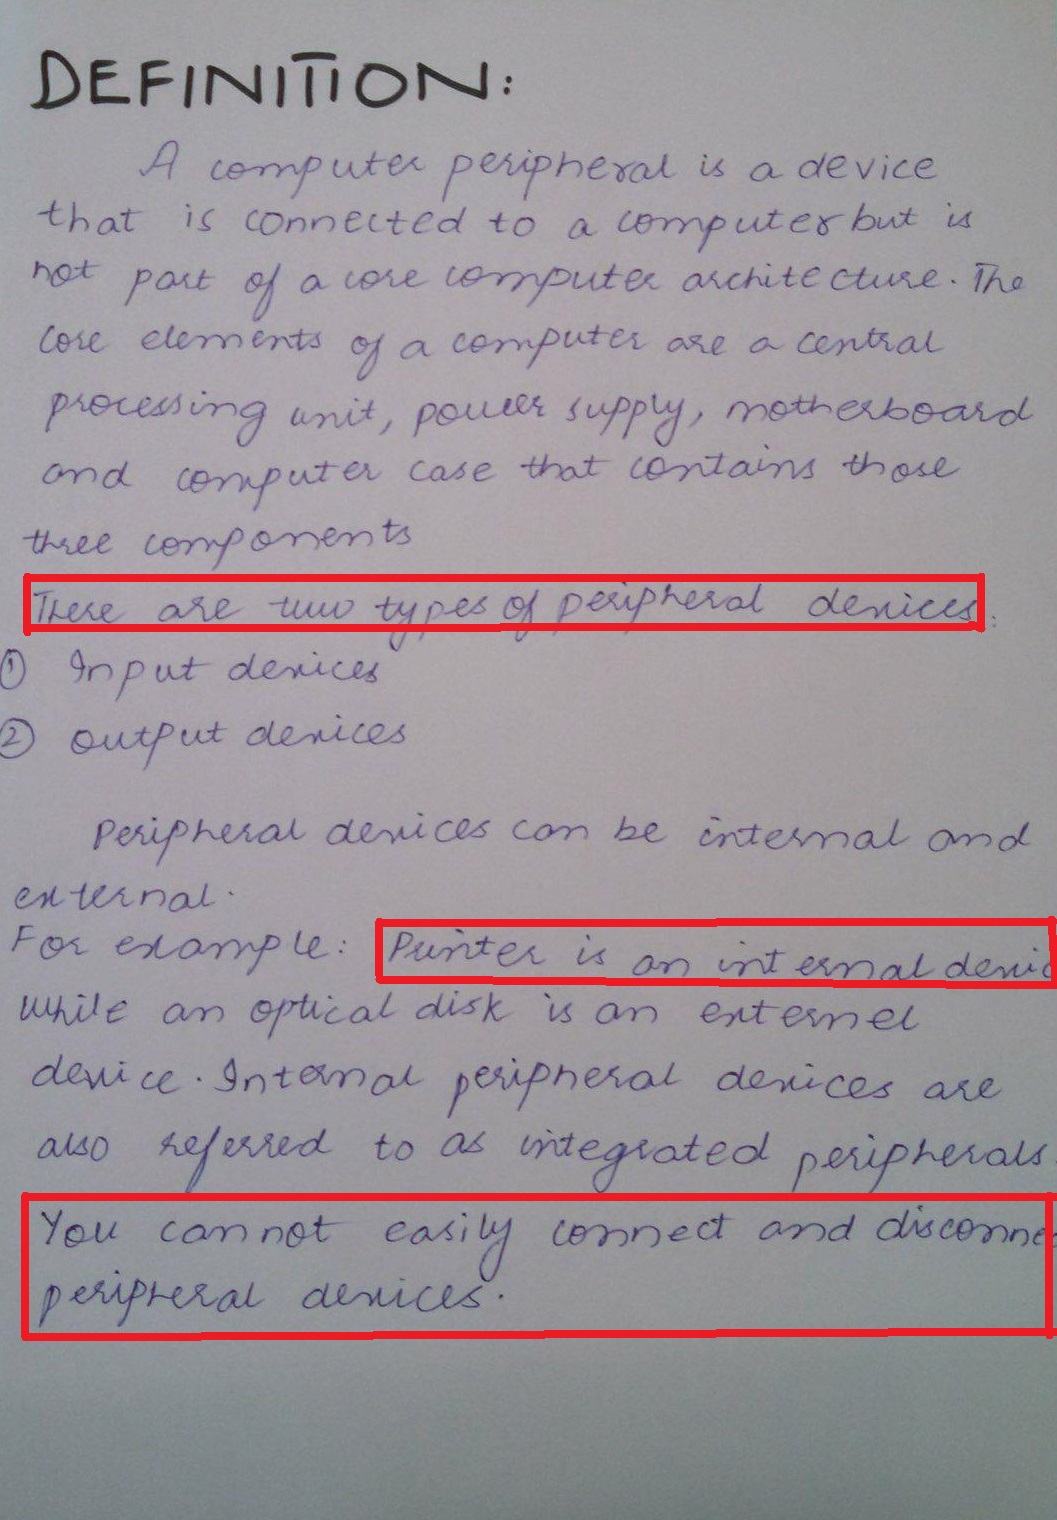 DEFINITION:
A computer peripheral is a device
that is connected to a computer but is
not part of a core computer architecture. The
core elements of a computer are a central
processing unit, power supply, motherboard
and computer case that contains those
three components
There are two types of peripheral devices:
① Input devices
② output devices
Peripheral devices can be internal and
external.
For example: Printer is an internal devic
while an optical disk is an externel
device. Internal peripheral devices are
also referred to as integrated peripherals.
You cannot easily connect and disconnec
peripheral devices.